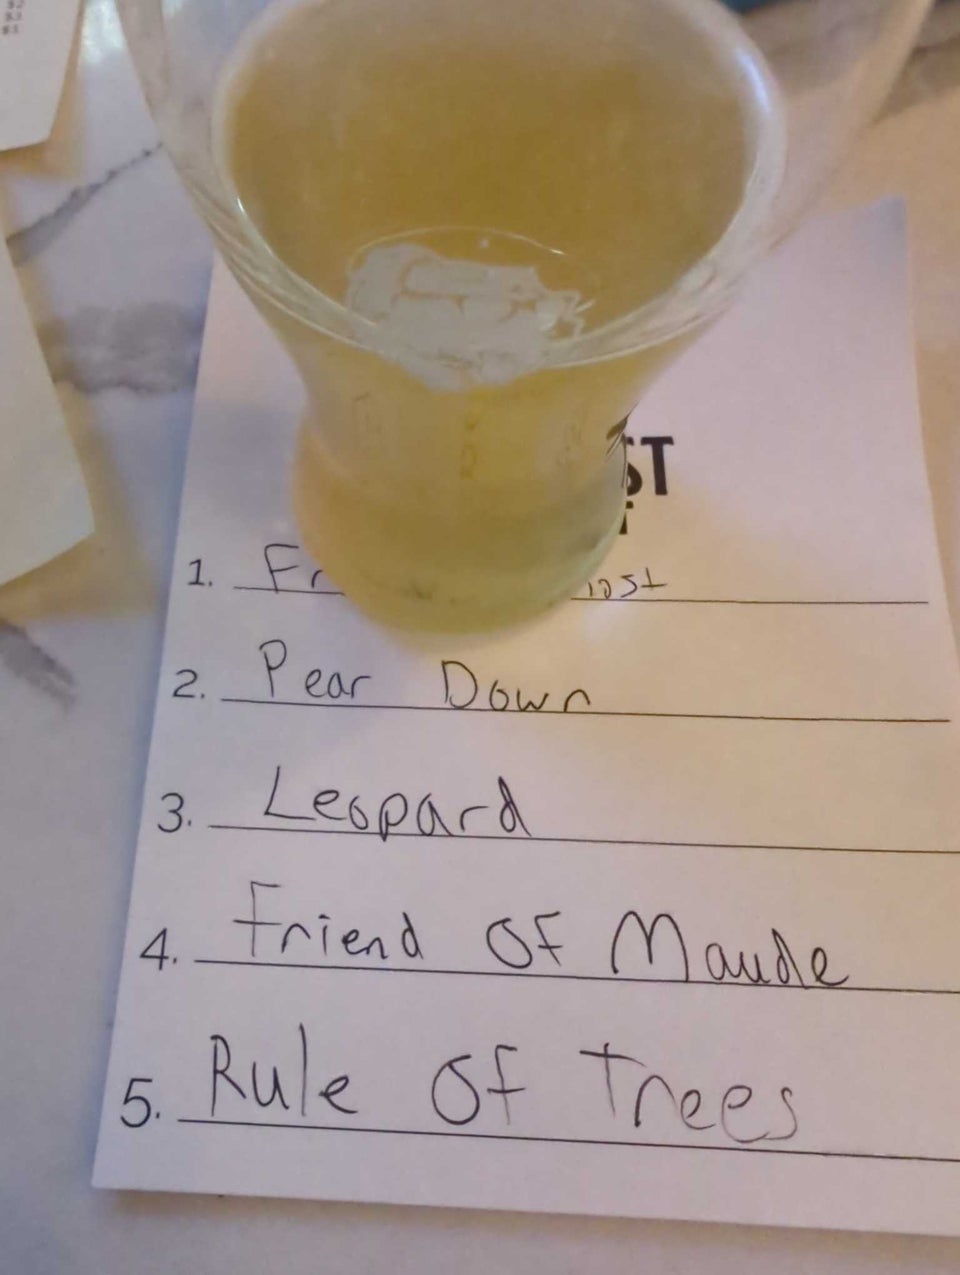 $2
$3
$3
ST
1. Fr
2. Pear Down
3. Leopard
4. Friend Of Maude
5. Rule Of Trees